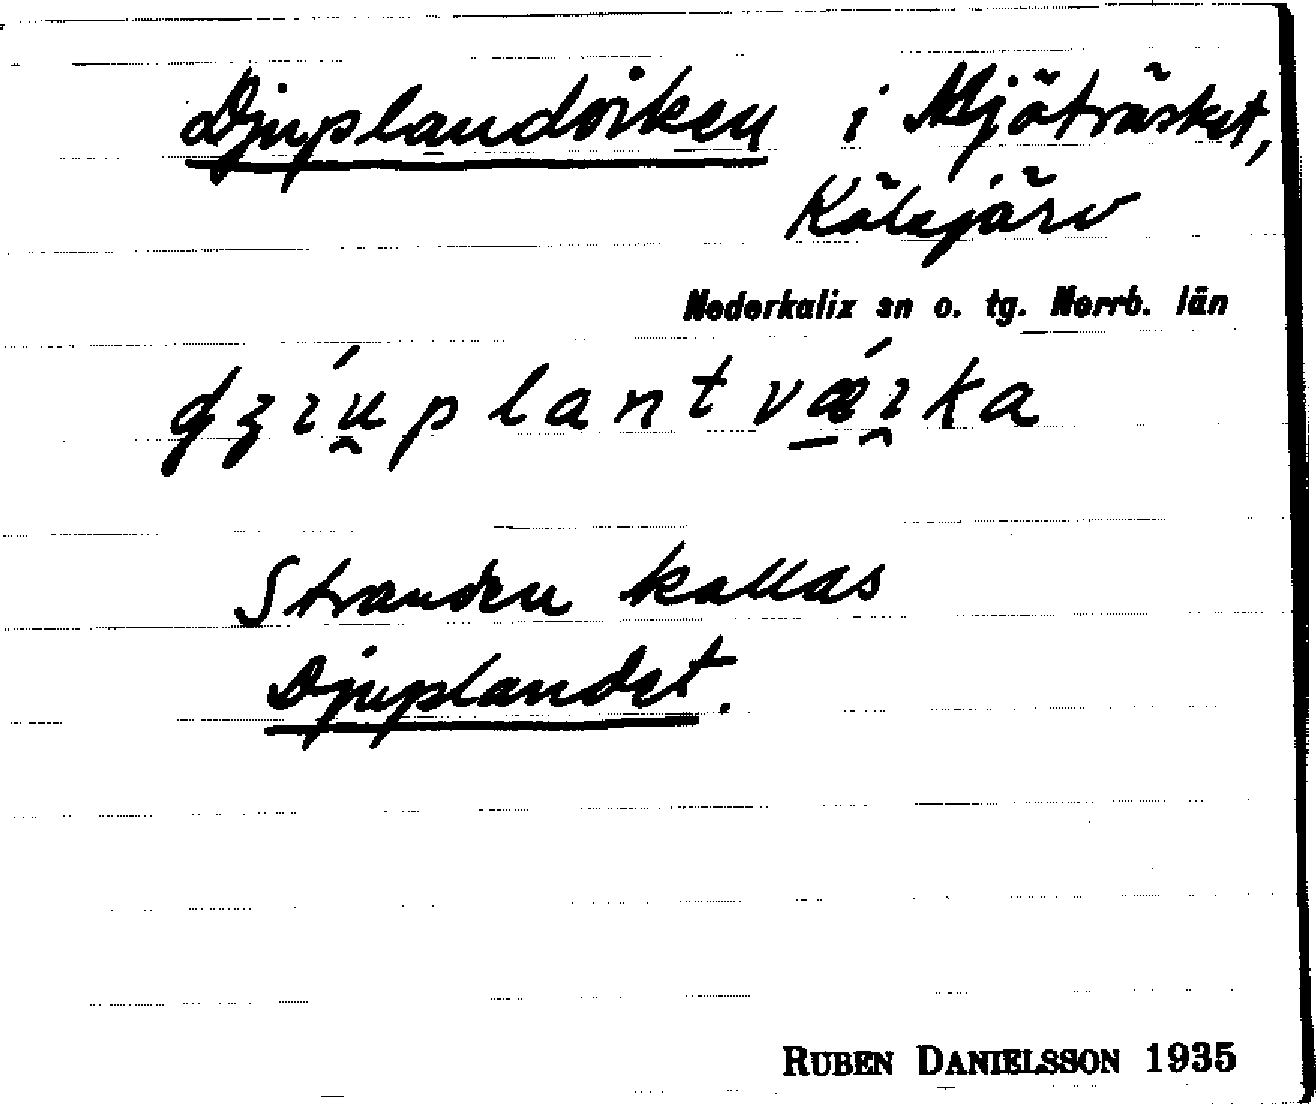 Djuplandviken i Mjöträsket,
Kölmjärv
Nederkalix sn o. tg. Norrb. län
Stranden kallas
Djuplandet.
RUBEN DANIELSSON 1935